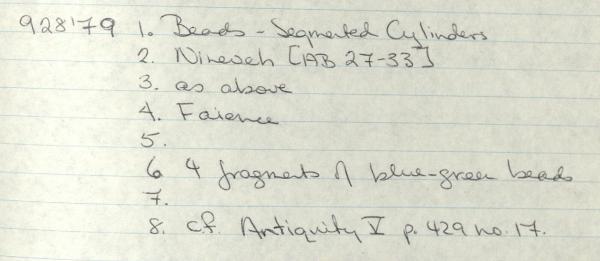 928'79 1. Beads - Segmented Cylinders
2. Nineveh [IAB 27-33']
3. as above
4. Faience
5.
6. 4 fragments of blue-green beads
7.
8. cf. Antiquity V p. 429 no. 17.